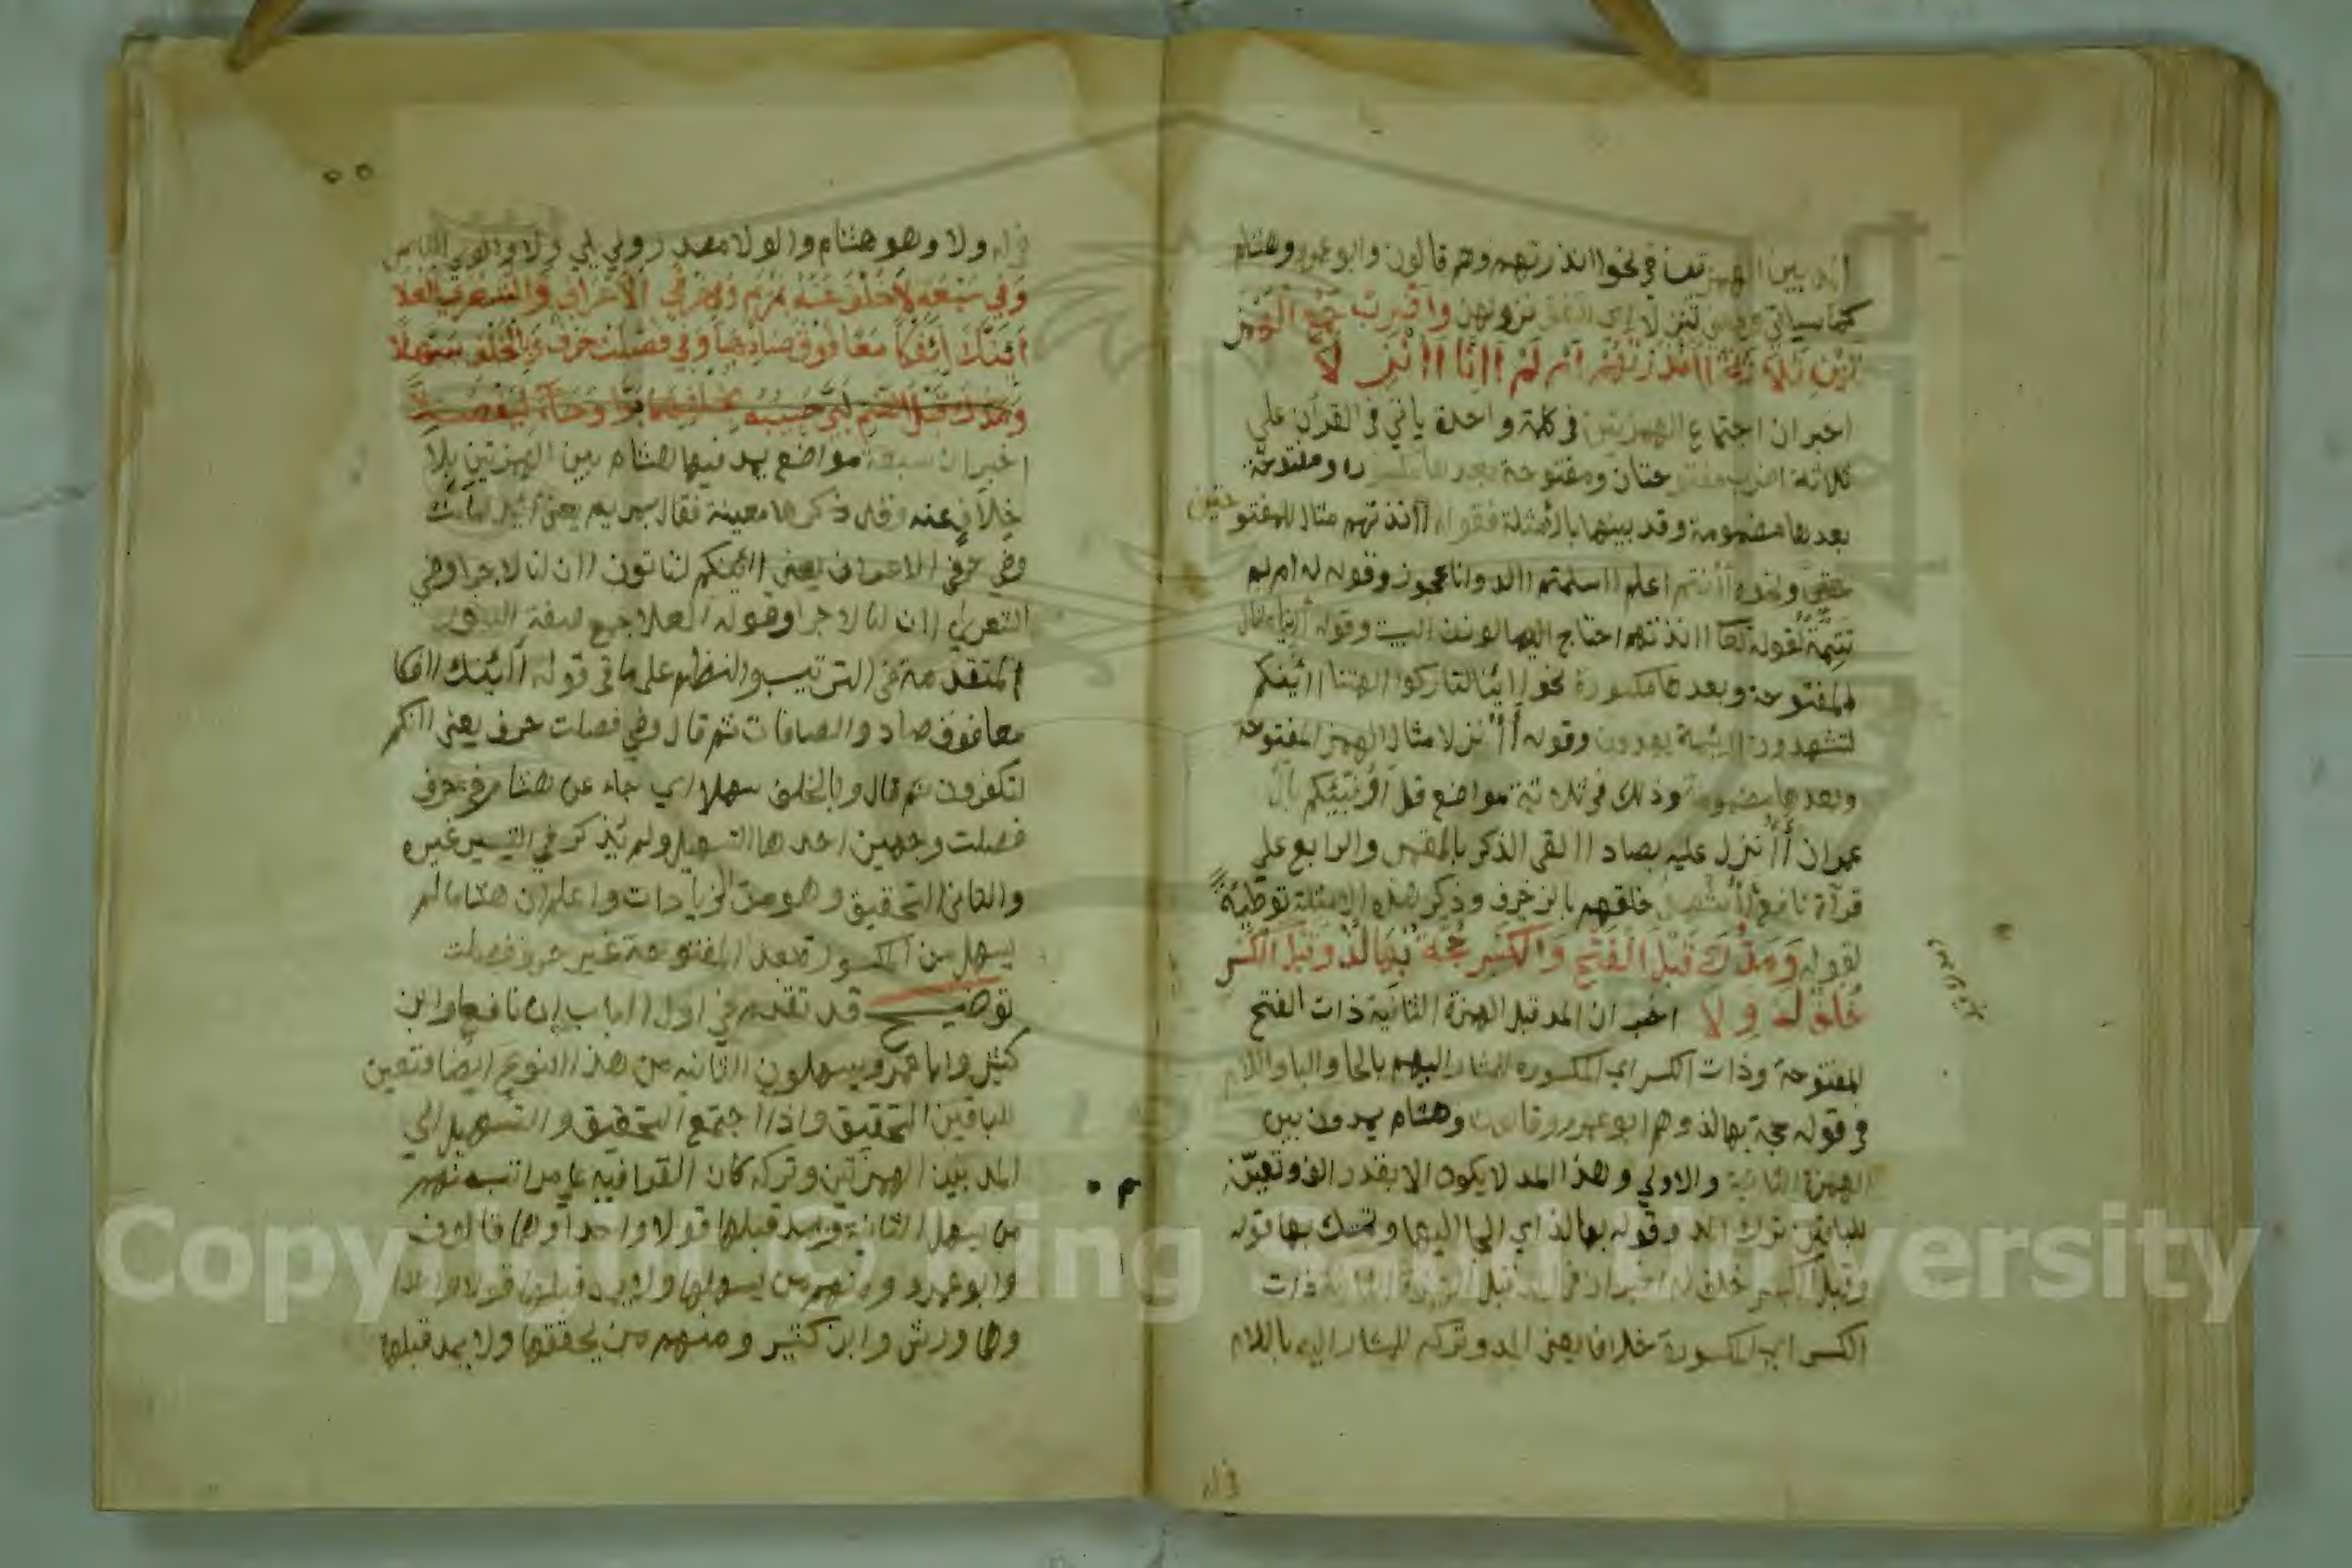 المد بين الهمزتين في نحو اانذرتهم وهم قالون وابو عمرو وهشام
كما سياتي وأضرب جمع الهمز
تين ثلاثة اانذرتهم ام لم اانا اانزلا
اخبر ان اجتماع الهمزتين في كلمة واحدة ياتي في القرآن علي
ثلاثة اضرب مفتوحتان ومفتوحة بعدها مكسورة ومفتوحة
بعدها مضمومة وقد بينها بالامثلة فقوله اانذرتهم مثال للمفتو حتين
ونحوه اانتم اعلم ااسلمتم االد وانا عجوز وقوله له ام لم
تتمة لقوله تعا اانذرتهم احتاج اليها لوزن البيت وقوله أإنا مثال
للمفتوحة وبعدها مكسورة نحو اإنا لتاركوا الهتنا اائنكم
لتشهدون وقوله أأنزلا مثال الهمز المفتوحة
وبعدها مضمومة وذلك في ثلاثة مواضع قل اؤنبئكم بال
عمران أأنزل عليه بصاد االقي الذكر بالقمر والرابع علي
قرآة نافع أأشهدوا خلقهم بالزخرف وذكر هذه الامثلة توطئة
لقوله ومدك قبل الفتح والكسر حجة بها لذ وقبل الكسر
خلف له ولا اخبر ان المد قبل الهمزة الثانية ذات الفتح
المفتوحة وذات الكسر اي المكسورة المشار اليهم بالحا والبا واللام
في قوله حجة بها لذ وهم ابو عمرو وقالون وهشام يمدون بين
الهمزة الثانية والاولي وهذا المد لا يكون الا بقدر الف وتعيّن
للباقين ترك المد وقوله بها لذ اي الجا اليها وتمسك بها قوله
وقبل الكسر خلف له اخبر ان في المد قبل الهمزة الثانية ذات
الكسر اي المكسورة خلافا يعني المد وتركه للمشار اليه باللام
في له
له ولا وهو هشام والولا مصدر ولي يلي ولا
وفي سبعة لا خلف عنه بمريم وفي حرفي الاعراف والشعرا العلا
ائنك ائفكا معا فوق صادها وفي فصلت حرف وبالخلف سهلا
ومدك قبل الضم لبى حبيبه بخلفهما برا وجاء ليفصلا
اخبر ان سبعة مواضع يمد فيها هشام بين الهمزتين بلا
خلاف عنه وقد ذكرها معينة فقال بمريم يعني أئذا ما مت
وفي حرفي الاعراف يعني اائنكم لتاتون اان لنا لاجرا وفي
الشعراي اان لنا لاجرا وقوله العلا جمع
المتقدمة في الترتيب والنظم علي ما في قوله أائنك اافكا
معا فوق صاد والصافات ثم قال وفي فصلت حرف يعني اانكم
لتكفرون ثم قال وبالخلف سهلا اي جاء عن هشام في حرف
فصلت وجهين احدها التسهيل ولم يذكر في التيسير غيره
والثاني التحقيق وهو من الزيادات واعلم ان هشاما لم
يسهل من المكسورة بعد المفتوحة غير حرف فصلت
توضيح قد تقدم في اول الباب ان نافعا وابن
كثير وابا عمرو يسهلون الثانية من هذا النوع ايضا فتعين
للباقين التحقيق واذا اجتمع التحقيق والتسهيل الي
المد بين الهمزتين وتركه كان القرا فيه علي مراتب منهم
من يسهل الثانية ويمد قبلها قولا واحدا وهما قالون
وابو عمرو ومنهم من يسهلها ولا يمد قبلها قولا واحدا
وهما ورش وابن كثير ومنهم من يحققها ولا يمد قبلها
Copyright © King Saud University